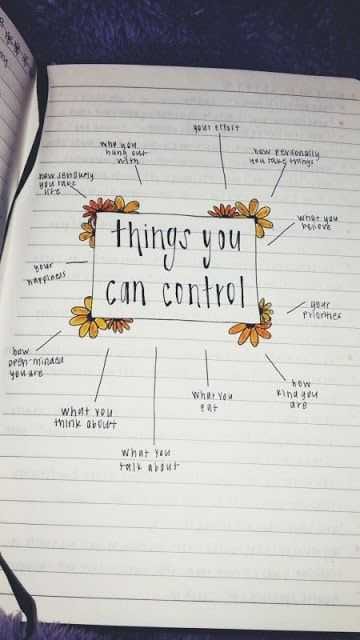 your effort
who you
hang out
with
how personally
you take things
how seriously
you take
life
things you
can control
what you
believe
your
happiness
your
priorities
how
open-minded
you are
what you
think about
what you
talk about
what you
eat
how
kind you
are